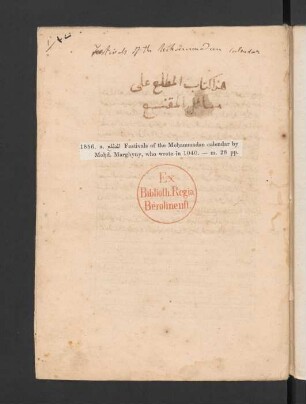 Festivals of the Mohammedan Calendar
هذا كتاب المطلع على
مسائل المقنع
1886. a. المطلع Festivals of the Mohammedan calendar by
Mohd. Marghyny, who wrote in 1040. — m. 28 pp.
Ex
Biblioth. Regia
Berolinensi.